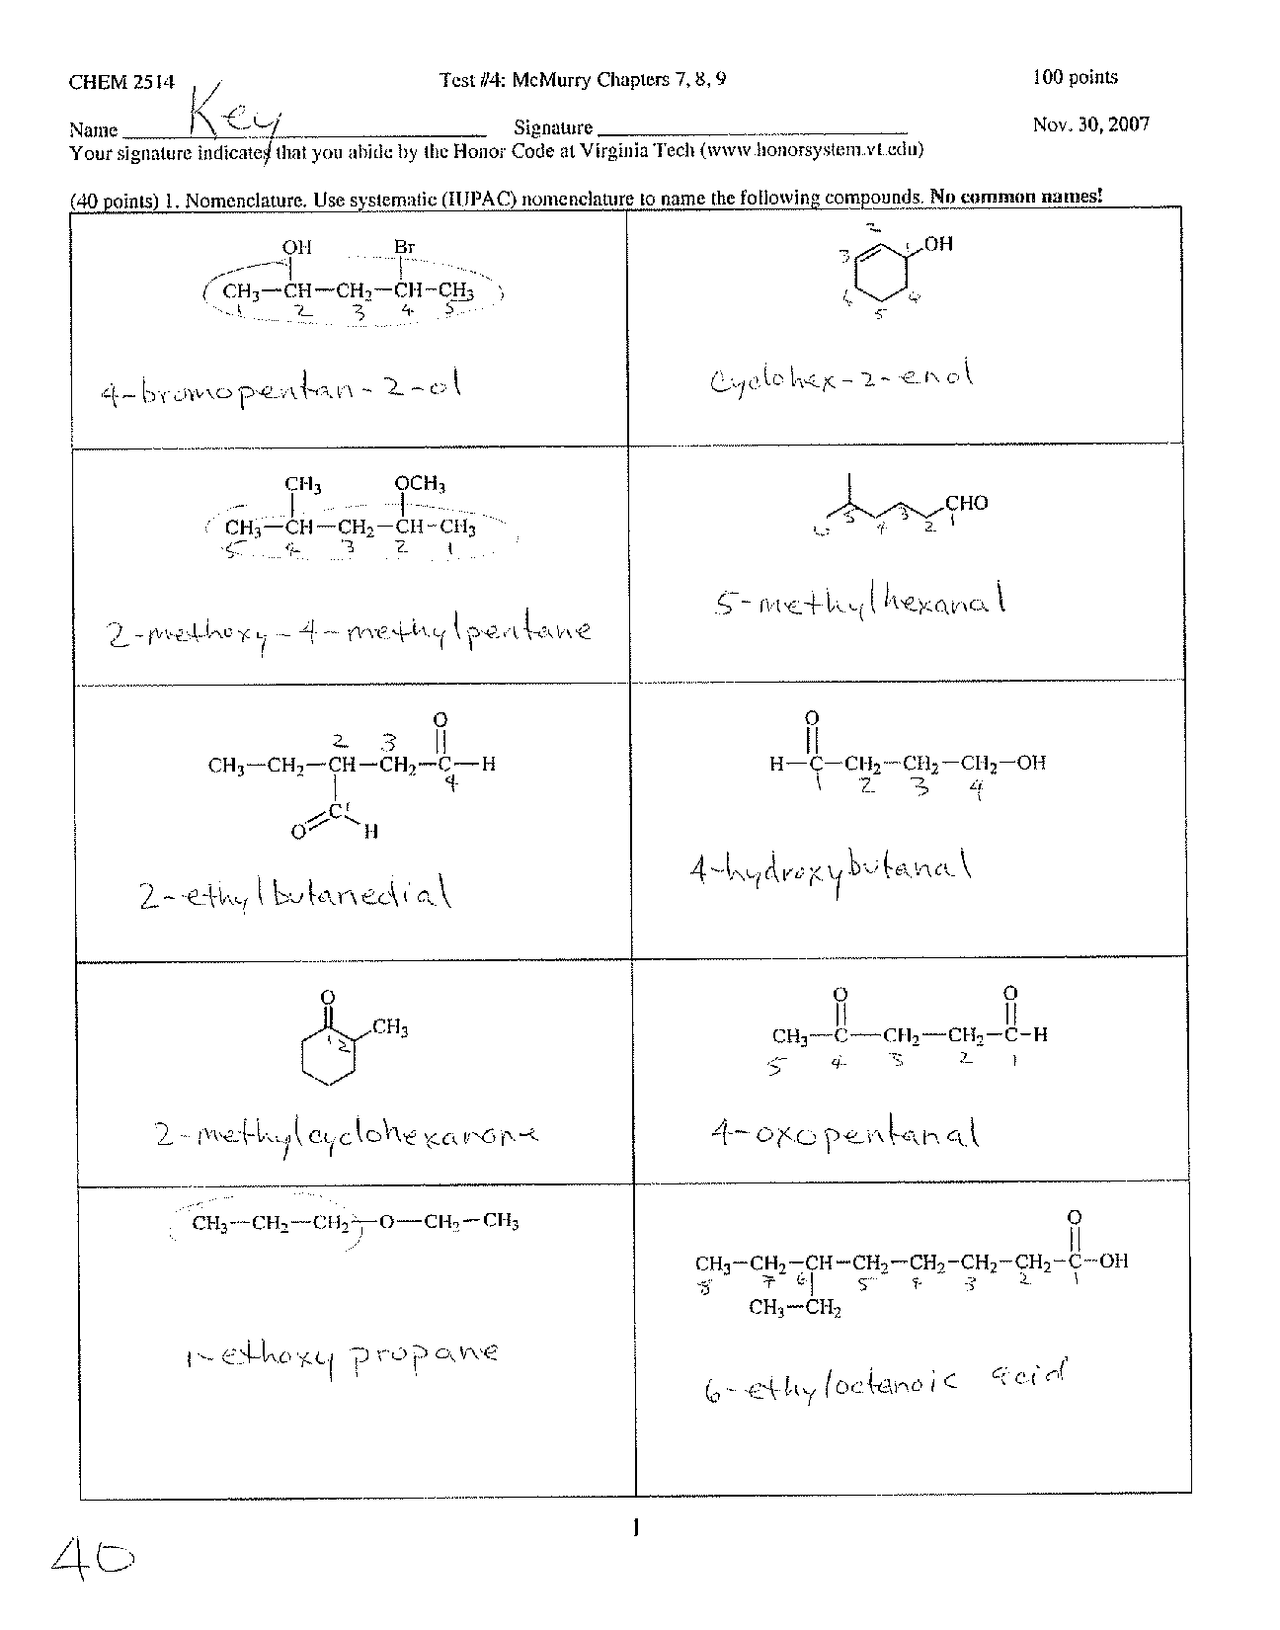 CHEM 2514 Test #4: McMurry Chapters 7, 8, 9 100 points
Name Key Signature Nov. 30, 2007
Your signature indicates that you abide by the Honor Code at Virginia Tech (www.honorsystem.vt.edu)
(40 points) 1. Nomenclature. Use systematic (IUPAC) nomenclature to name the following compounds. No common names!
OH Br
CH3—CH—CH2—CH—CH3
1 2 3 4 5
4-bromopentan-2-ol
2
3 1 OH
6
5
Cyclohex-2-enol
CH3 OCH3
CH3—CH—CH2—CH—CH3
5 4 3 2 1
2-methoxy-4-methylpentane
CHO
6 5 4 3 2 1
5-methylhexanal
O
2 3
CH3—CH2—CH—CH2—C—H
4
C 1
O H
2-ethylbutanedial
O
H—C—CH2—CH2—CH2—OH
1 2 3 4
4-hydroxybutanal
O
CH3
1 2
2-methylcyclohexanone
O O
CH3—C—CH2—CH2—C—H
5 4 3 2 1
4-oxopentanal
CH3—CH2—CH2—O—CH2—CH3
1-ethoxy propane
O
CH3—CH2—CH—CH2—CH2—CH2—CH2—C—OH
8 7 6 5 4 3 2 1
CH3—CH2
6-ethyloctanoic acid
1
40